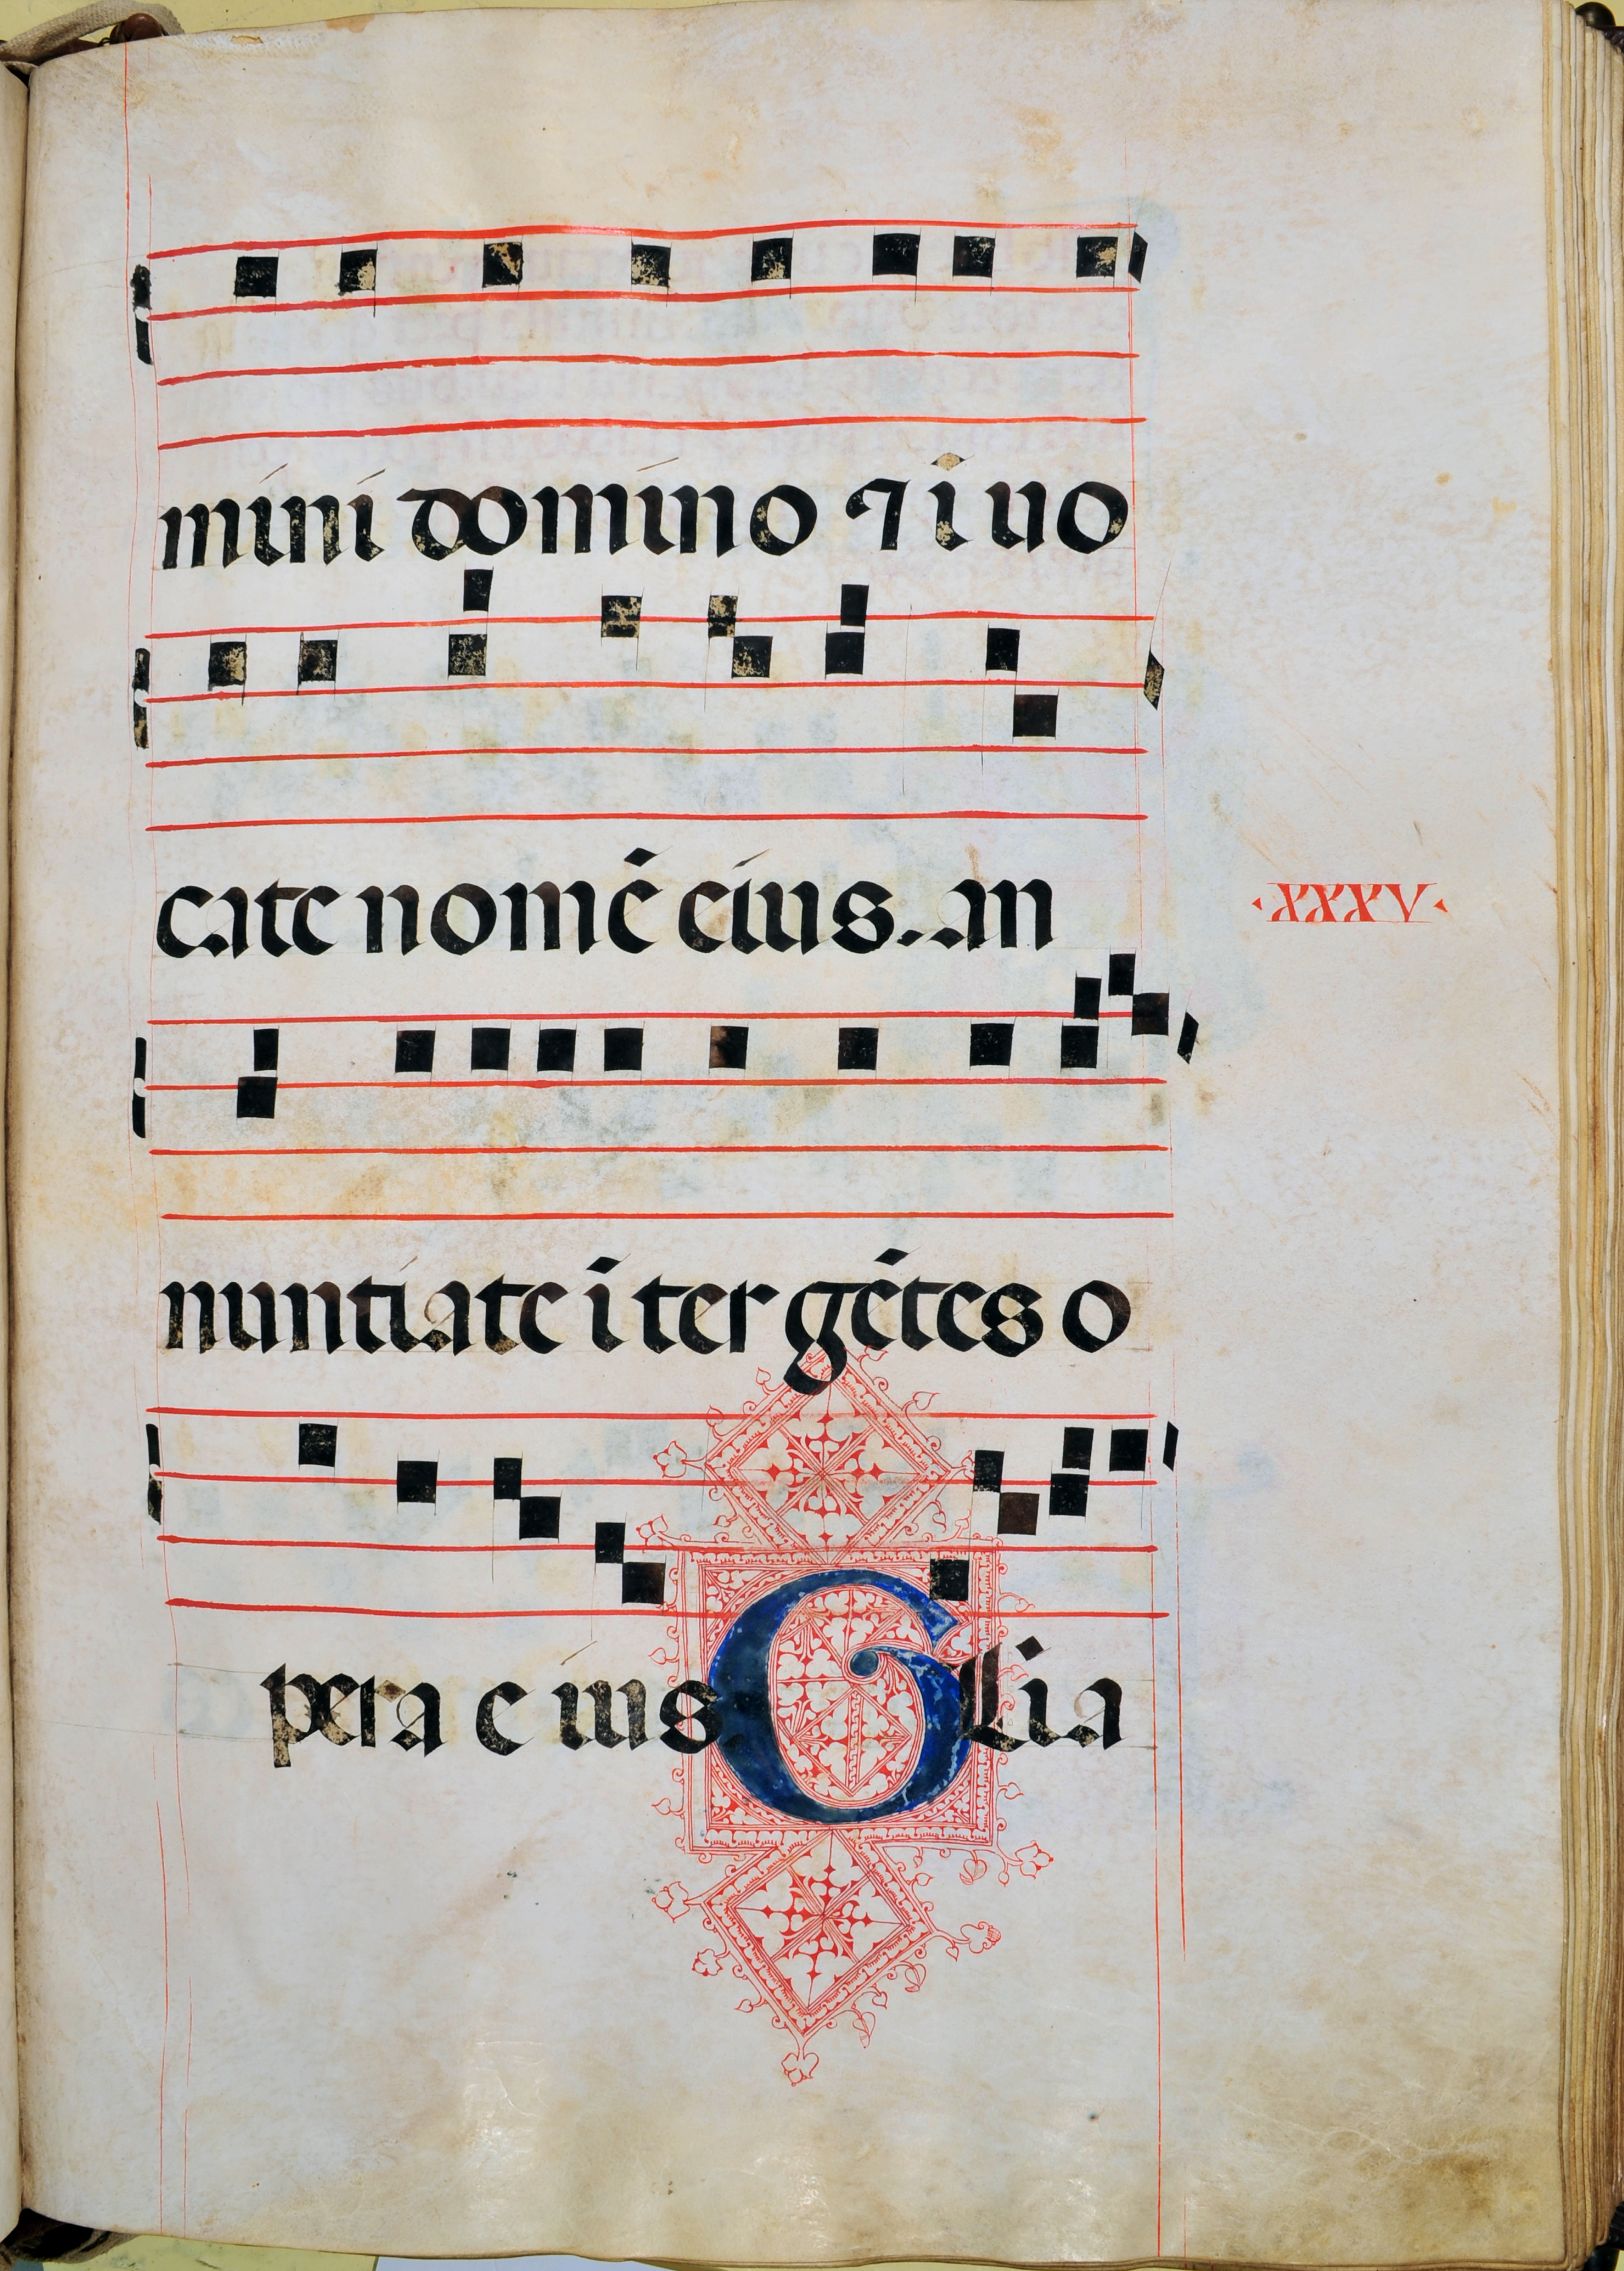 mini domino ⁊ i uo
cate nomē eius. an
·XXXV·
nuntiate ī ter gētes o
pera e ius Glia